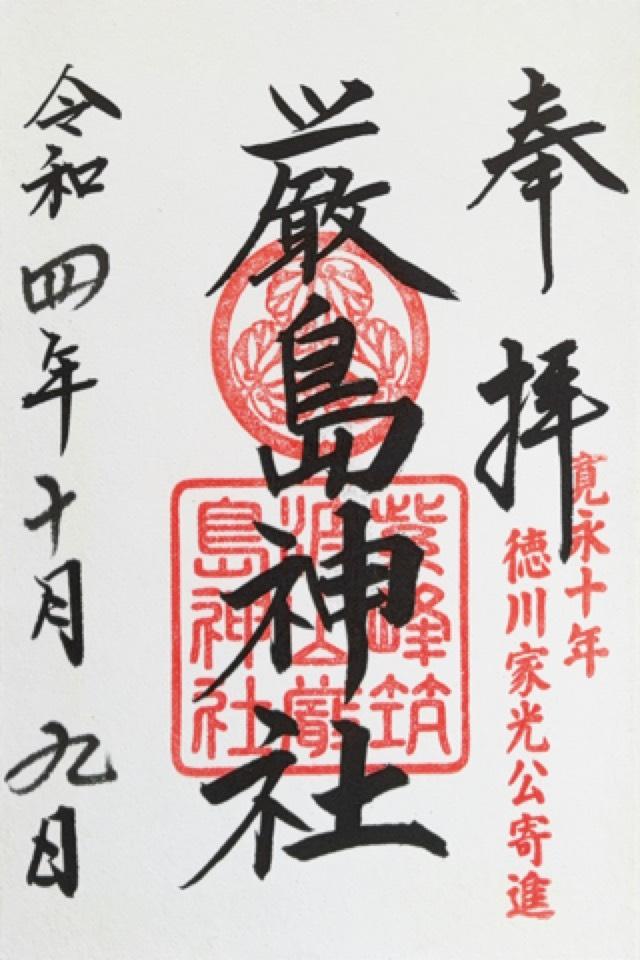 奉拝
寛永十年
徳川家光公寄進
厳島神社
紫峰筑
波山厳
島神社
令和四年十月九日